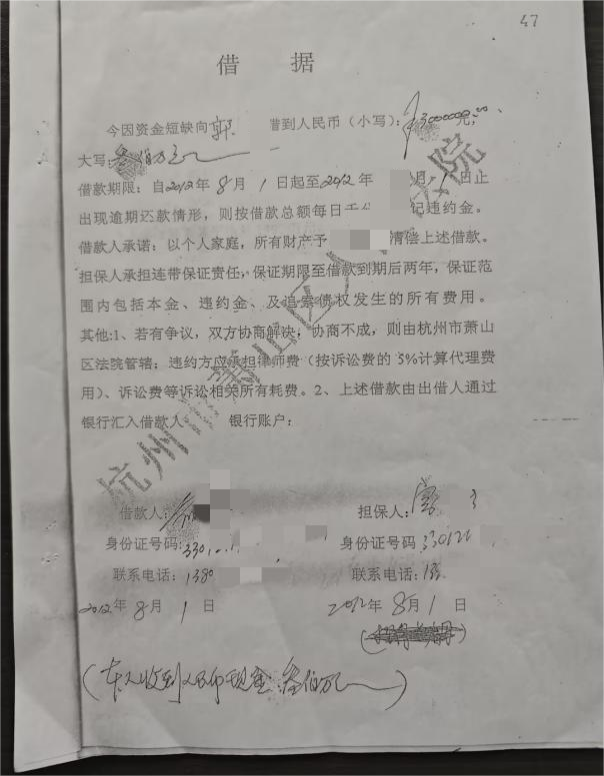 47
借 据
今因资金短缺向郭 借到人民币（小写）：¥3000000元，
大写：叁佰万元
借款期限：自2012年8月1日起至2012年 月1日止
出现逾期还款情形，则按借款总额每日千分 记违约金。
借款人承诺：以个人家庭，所有财产予 清偿上述借款。
担保人承担连带保证责任，保证期限至借款到期后两年，保证范
围内包括本金、违约金、及追索债权发生的所有费用。
其他:1、若有争议，双方协商解决，协商不成，则由杭州市萧山
区法院管辖；违约方应承担律师费（按诉讼费的5%计算代理费
用）、诉讼费等诉讼相关所有耗费。2、上述借款由出借人通过
银行汇入借款人 银行账户：
杭州 萧山区人 院
借款人： 担保人：
身份证号码:330 身份证号码330122
联系电话：1380 联系电话：
2012年8月1日 2012年8月1日
（本人收到人民币现金：叁佰万元）